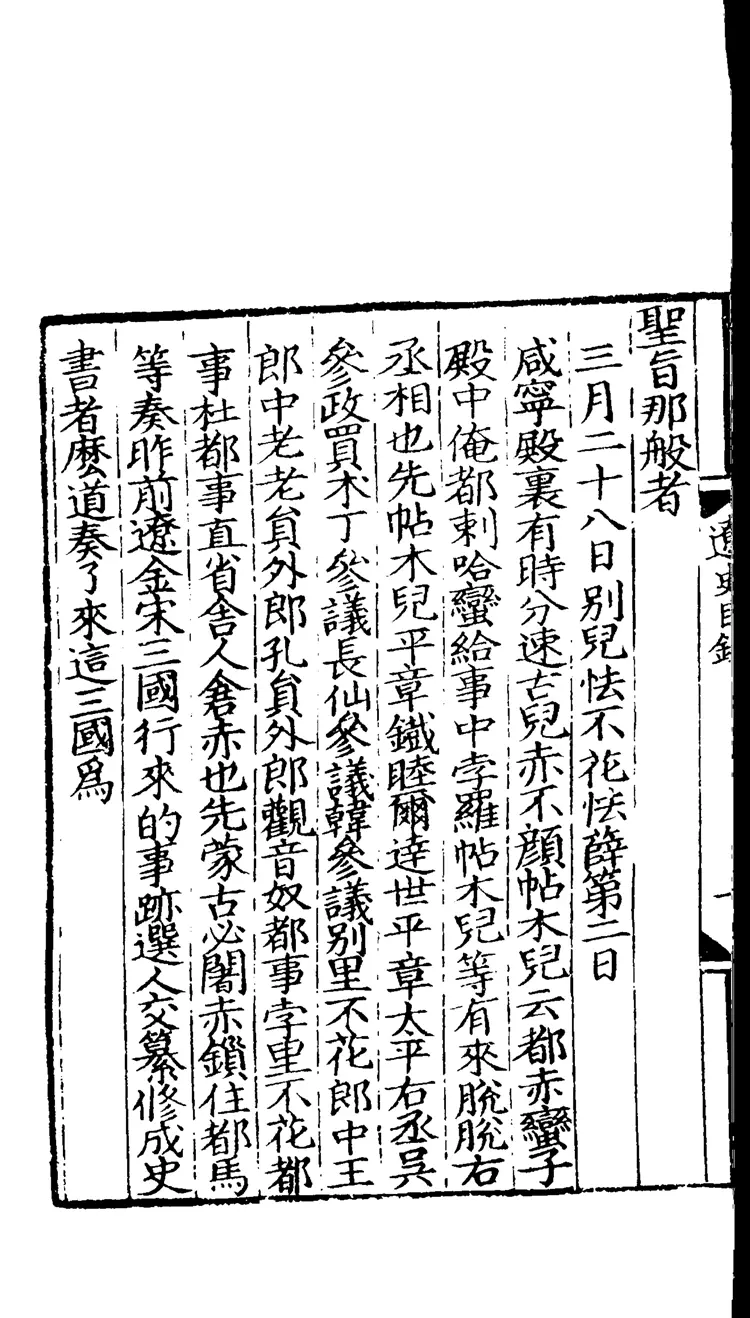 遼史目錄
一
聖旨那般者
三月二十八日別兒怯不花怯薛第二日
咸寧殿裏有時分速古兒赤不顏帖木兒云都赤蠻子
殿中俺都剌哈蠻給事中孛羅帖木兒等有來脫脫右
丞相也先帖木兒平章鐵睦爾達世平章太平右丞吳
參政買朮丁參議長仙參議韓參議別里不花郎中王
郎中老老貟外郎孔貟外郎觀音奴都事孛里不花都
事杜都事直省舍人倉赤也先蒙古必闍赤鎖住都馬
等奏昨前遼金宋三國行來的事跡選人交纂修成史
書者麽道奏了來這三國爲